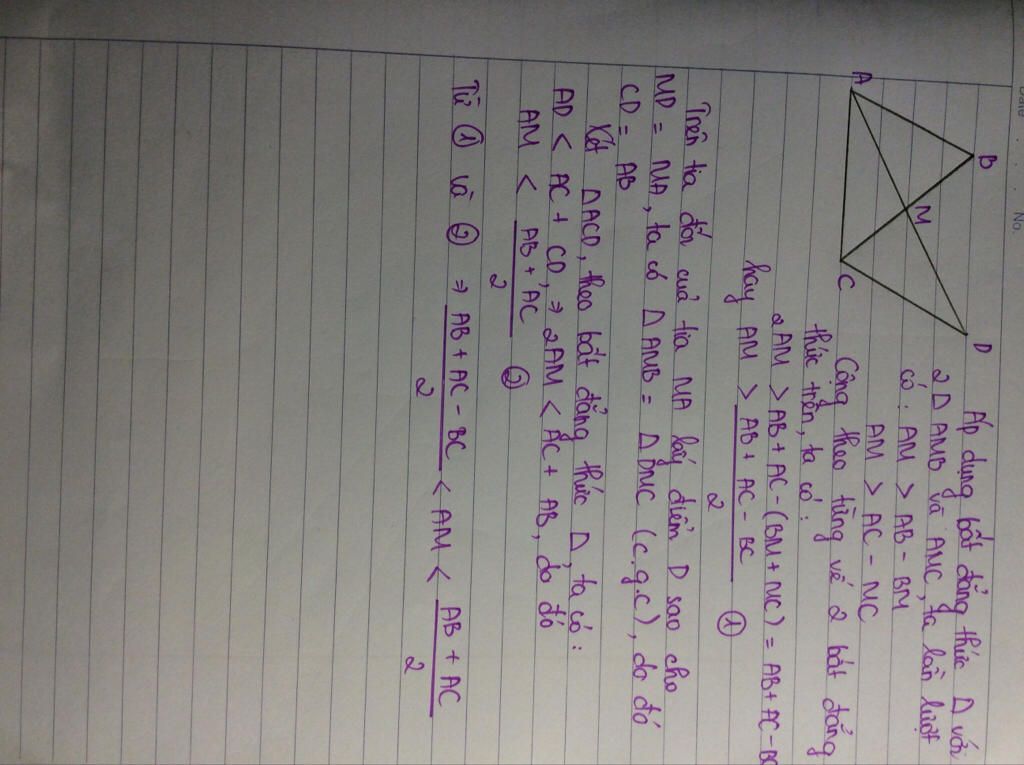 Date
No.
A
B
M
C
D
Áp dụng bất đẳng thức Δ với
2 Δ AMB và AMC, ta lần lượt
có : AM > AB - BM
AM > AC - MC
Cộng theo từng vế 2 bất đẳng
thức trên, ta có :
2AM > AB + AC - (BM + MC) = AB + AC - BC
hay AM > AB + AC - BC / 2 ①
Trên tia đối của tia MA lấy điểm D sao cho
MD = MA, ta có Δ AMB = Δ DMC (c.g.c), do đó
CD = AB
Xét Δ ACD, theo bất đẳng thức Δ, ta có :
AD < AC + CD, ⇒ 2AM < AC + AB, do đó
AM < AB + AC / 2 ②
Từ ① và ② ⇒ AB + AC - BC / 2 < AM < AB + AC / 2